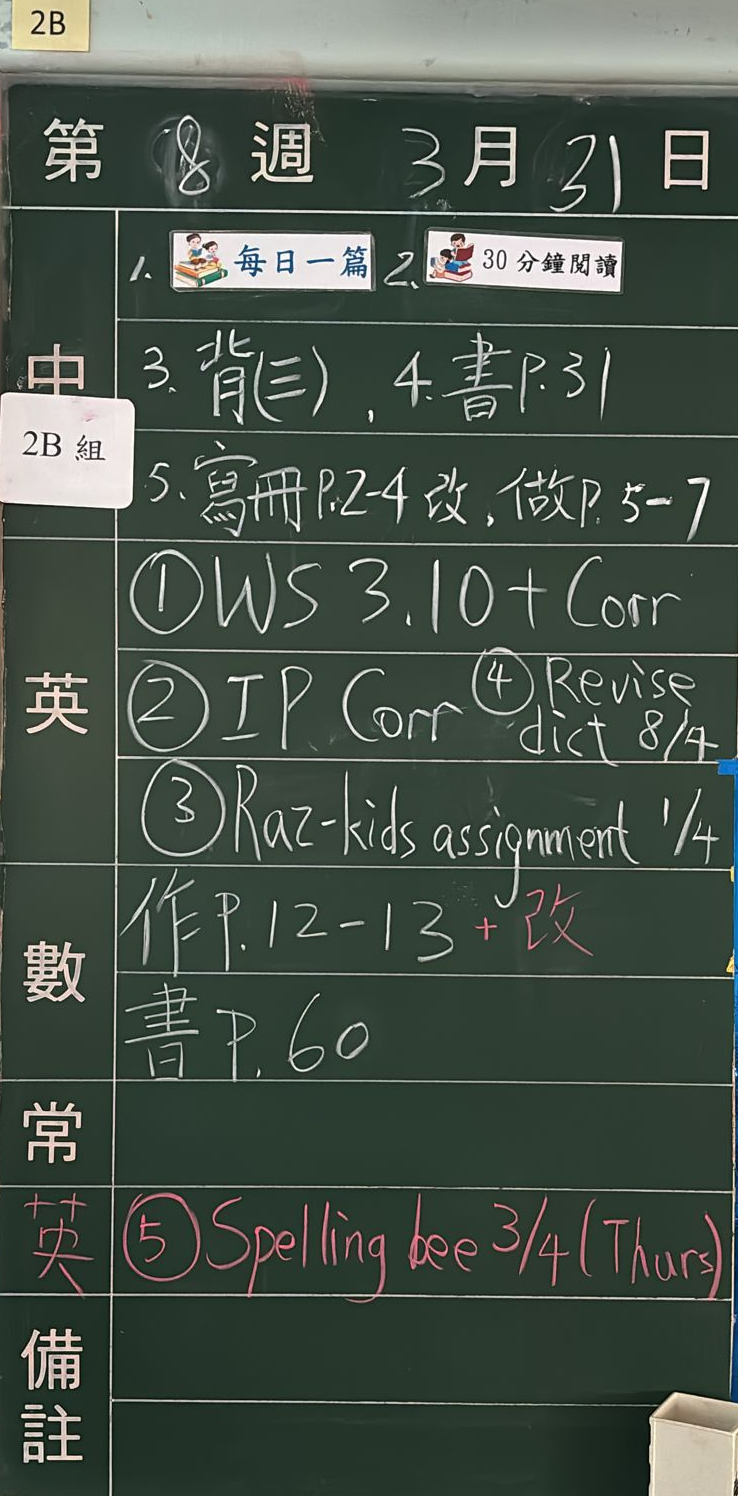 2B
第 8 週 3月31日
中
1. 每日一篇 2. 30分鐘閱讀
3. 背(三), 4. 書P.31
2B 組
5. 寫冊P.2-4改, 做P.5-7
英
① WS 3.10 + Corr
② IP Corr ④ Revise dict 8/4
③ Raz-kids assignment 1/4
數
作P.12-13 + 改
書P.60
常
英 ⑤ Spelling bee 3/4 (Thurs)
備註